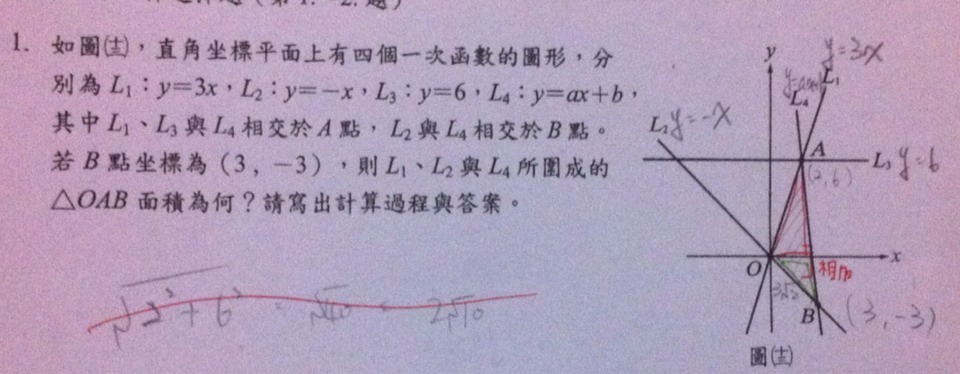 1. 如圖(十二),直角坐標平面上有四個一次函數的圖形,分
別為 L₁:y=3x,L₂:y=-x,L₃:y=6,L₄:y=ax+b,
其中 L₁、L₃ 與 L₄ 相交於 A 點,L₂ 與 L₄ 相交於 B 點。
若 B 點坐標為 (3, -3),則 L₁、L₂ 與 L₄ 所圍成的
△OAB 面積為何?請寫出計算過程與答案。
y
y=3x
L₁
L₄
L₂ y=-x
A
L₃ y=6
(2,6)
O
x
相加
3√2
B
(3,-3)
√2²+6² = √40 = 2√10
圖(十二)